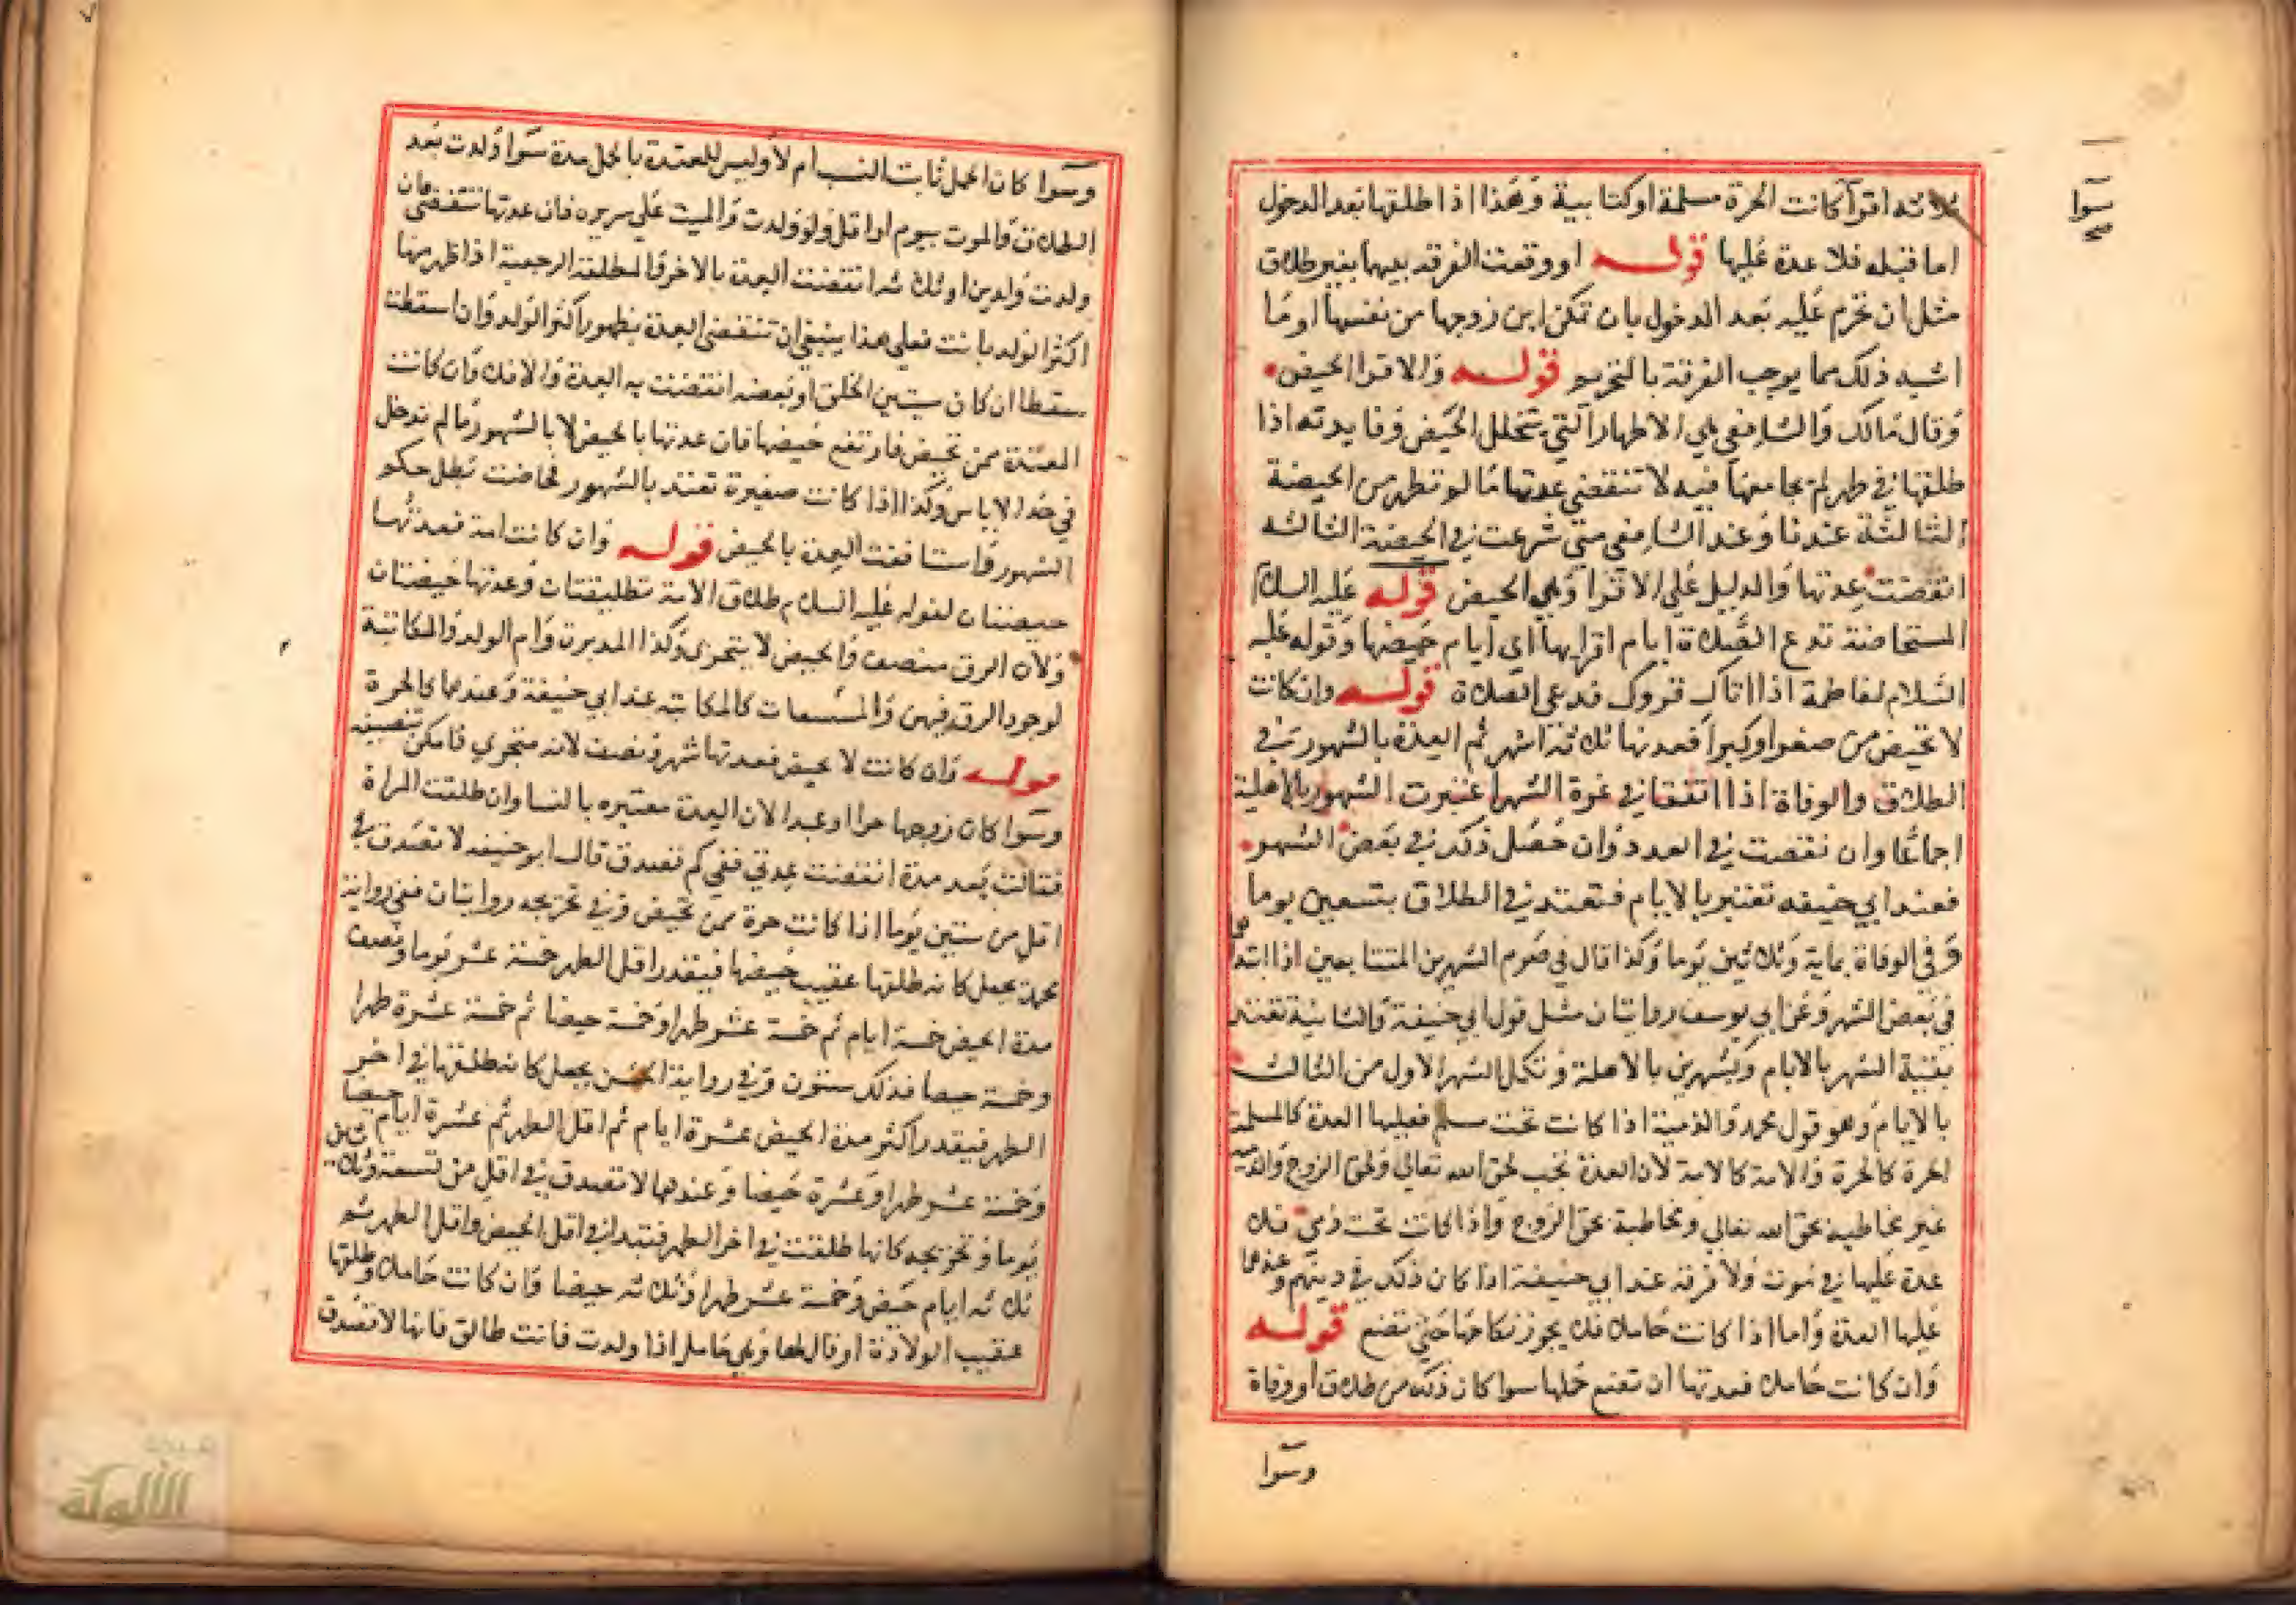 سوا
صح
ثلاثة اقرآ كانت الحرة مسلمة او كتابية وهذا اذا طلقها بعد الدخول
اما قبله فلا عدة عليها قوله او وقعت الفرقة بينهما بغير طلاق
مثل ان تحرم عليه بعد الدخول بان تمكن ابن زوجها من نفسها او ما
اشبه ذلك مما يوجب الفرقة بالتحريم قوله والاقرا الحيض
وقال مالك والشافعي هي الاطهار التي تتخلل الحيض وفايدته اذا
طلقها في طهر لم يجامعها فيه لا تنقضي عدتها ما لم تطهر من الحيضة
الثالثة عندنا وعند الشافعي متى شرعت في الحيضة الثالثة
انقضت عدتها والدليل على الاقرا وهي الحيض قوله عليه السلام
المستحاضة تدع الصلاة ايام اقرايها اي ايام حيضها وقوله عليه
السلام لفاطمة اذا اتاك قروك فدعي الصلاة قوله وان كانت
لا تحيض من صغر او كبر فعدتها ثلاثة اشهر ثم العدة بالشهور في
الطلاق والوفاة اذا اتفقا في غرة الشهر اعتبرت الشهور بالاهلية
اجماعا وان نقصت في العدد وان حصل ذلك في بعض الشهر
فعند ابي حنيفه تعتبر بالايام فتعتد في الطلاق بتسعين يوما
وفي الوفاة بماية وثلاثين يوما وكذا قال في صوم الشهرين المتتابعين اذا ابتداهما
في بعض الشهر وعن ابي يوسف روايتان مثل قول ابي حنيفة والثانية تعتد
بقية الشهر بالايام وبشهرين بالاهلة وتكمل الشهر الاول من الثالث
بالايام وهو قول محمد والذمية اذا كانت تحت مسلم فعليها العدة كالمسلمة
الحرة كالحرة والامة كالامة لان العدة تجب لحق الله تعالى ولحق الزوج والذمية
غير مخاطبة بحق الله تعالى ومخاطبة بحق الزوج واذا كانت تحت ذمي فلا
عدة عليها في موت ولا فرقة عند ابي حنيفة اذا كان ذلك في دينهم وعندهما
عليها العدة واما اذا كانت حاملا فلا يجوز نكاحها حتى تضع قوله
وان كانت حاملا فعدتها ان تضع حملها سوا كان ذلك من طلاق او وفاة
وسوا
وسوا كان الحمل ثابت النسب ام لا وليس للمعتدة بالحمل مدة سوا ولدت بعد
الطلاق والموت بيوم او اقل ولو ولدت والميت على سريره فان عدتها تنقضي فان
ولدت ولدين او ثلاثة انقضت العدة بالاخر والمطلقة الرجعية اذا ظهر منها
اكثر الولد بانت فعلى هذا ينبغي ان تنقضي العدة بظهور اكثر الولد وان اسقطت
سقطا ان كان يستبين الخلق او بعضه انقضت به العدة والا فلا وان كانت
المعتدة ممن تحيض فارتفع حيضها فان عدتها بالحيض لا بالشهور ما لم تدخل
في حد الاياس وكذا اذا كانت صغيرة تعتد بالشهور فحاضت بطل حكم
الشهور واستانفت العدة بالحيض قوله وان كانت امة فعدتها
حيضتان لقوله عليه السلام طلاق الامة تطليقتان وعدتها حيضتان
ولان الرق منصف والحيض لا يتجزى وكذا المدبرة وام الولد والمكاتبة
لوجود الرق فيهن والمستسعات كالمكاتبة عند ابي حنيفة وعندهما كالحرة
قوله وان كانت لا تحيض فعدتها شهر ونصف لانه متجزي فامكن تنصيفه
وسوا كان زوجها حرا او عبدا لان العدة معتبره بالنسا وان طلقت المراة
فقالت بعد مدة انقضت عدتي ففي كم تصدق قال ابو حنيفه لا تصدق في
اقل من ستين يوما اذا كانت حرة ممن تحيض وفي تخريجه روايتان ففي رواية
محمد يجعل كانه طلقها عقيب حيضها فيقدر اقل الطهر خمسة عشر يوما ونصف
مدة الحيض خمسة ايام ثم خمسة عشر طهرا وخمسة حيضا ثم خمسة عشرة طهرا
وخمسة حيضا فذلك ستون وفي رواية الحسن يجعل كانه طلقها في اخر
الطهر فيقدر اكثر مدة الحيض عشرة ايام ثم اقل الطهر ثم عشرة ايام حيضا
وخمسة عشر طهرا وعشرة حيضا وعندهما لا تصدق في اقل من تسعة وثلاثين
يوما وتخريجه كانها طلقت في اخر الطهر فتبدا في اقل الحيض واقل الطهر ثم
ثلاثة ايام حيض وخمسة عشر طهرا وثلاثة حيضا وان كانت حاملا وطلقها
عقيب الولادة او قال لها وهي حامل اذا ولدت فانت طالق فانها لا تصدق
شبكة
الألوكة